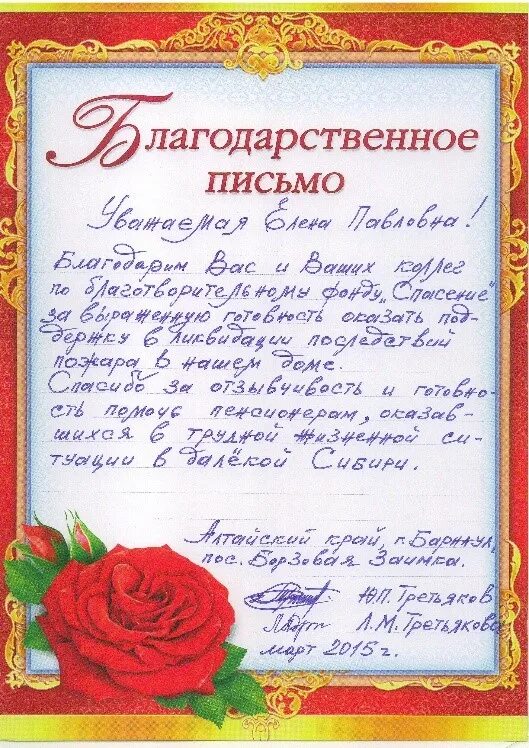 Благодарственное
письмо
Уважаемая Елена Павловна!
Благодарим Вас и Ваших коллег
по благотворительному фонду „Спасение"
за выраженную готовность оказать под-
держку в ликвидации последствий
пожара в нашем доме.
Спасибо за отзывчивость и готовно-
сть помочь пенсионерам, оказав-
шихся в трудной жизненной си-
туации в далёкой Сибири.
Алтайский край, г. Барнаул,
пос. Борзовая Заимка.
Ю.П. Третьяков
Л.М. Третьякова
март 2015 г.